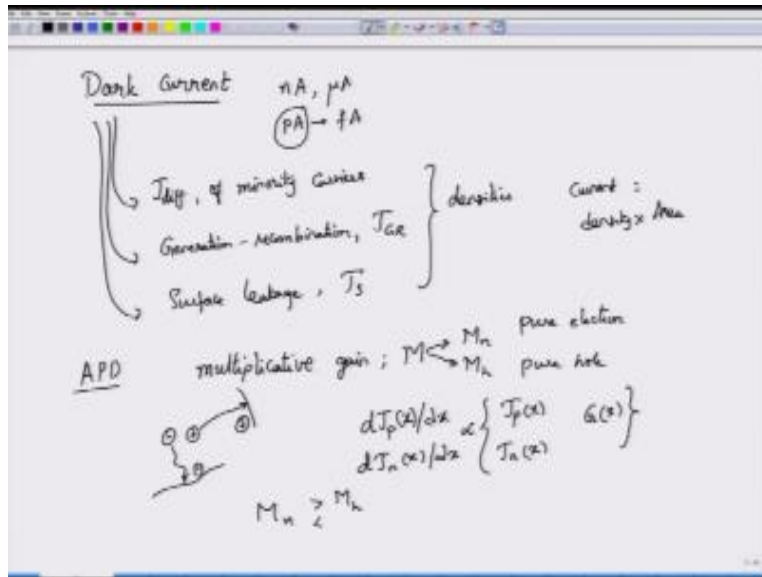 Dark Current nA, μA
pA → fA
Jdiff, of minority carriers
Generation-recombination, JGR
Surface leakage, Js
} densities
Current :
density x Area
APD multiplicative gain ; M → Mn pure electron
→ Mh pure hole
dJp(x)/dx ∝ { Jp(x) G(x) }
dJn(x)/dx Jn(x)
Mn ≷ Mh